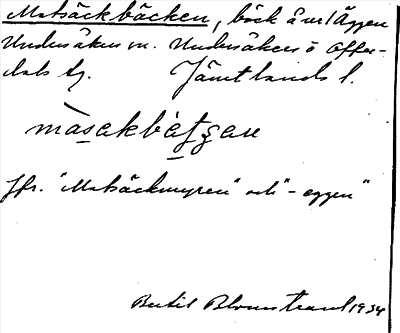 Matsäckbäcken, bäck å ver/Äggen
Undersåkers sn. Undersåkers o Offer-
dals tg. Jämtlands l.
màsakbàtʃan
Jfr. "Matsäckmyren" och "-eggen"
Bertil Blomstrand 1934